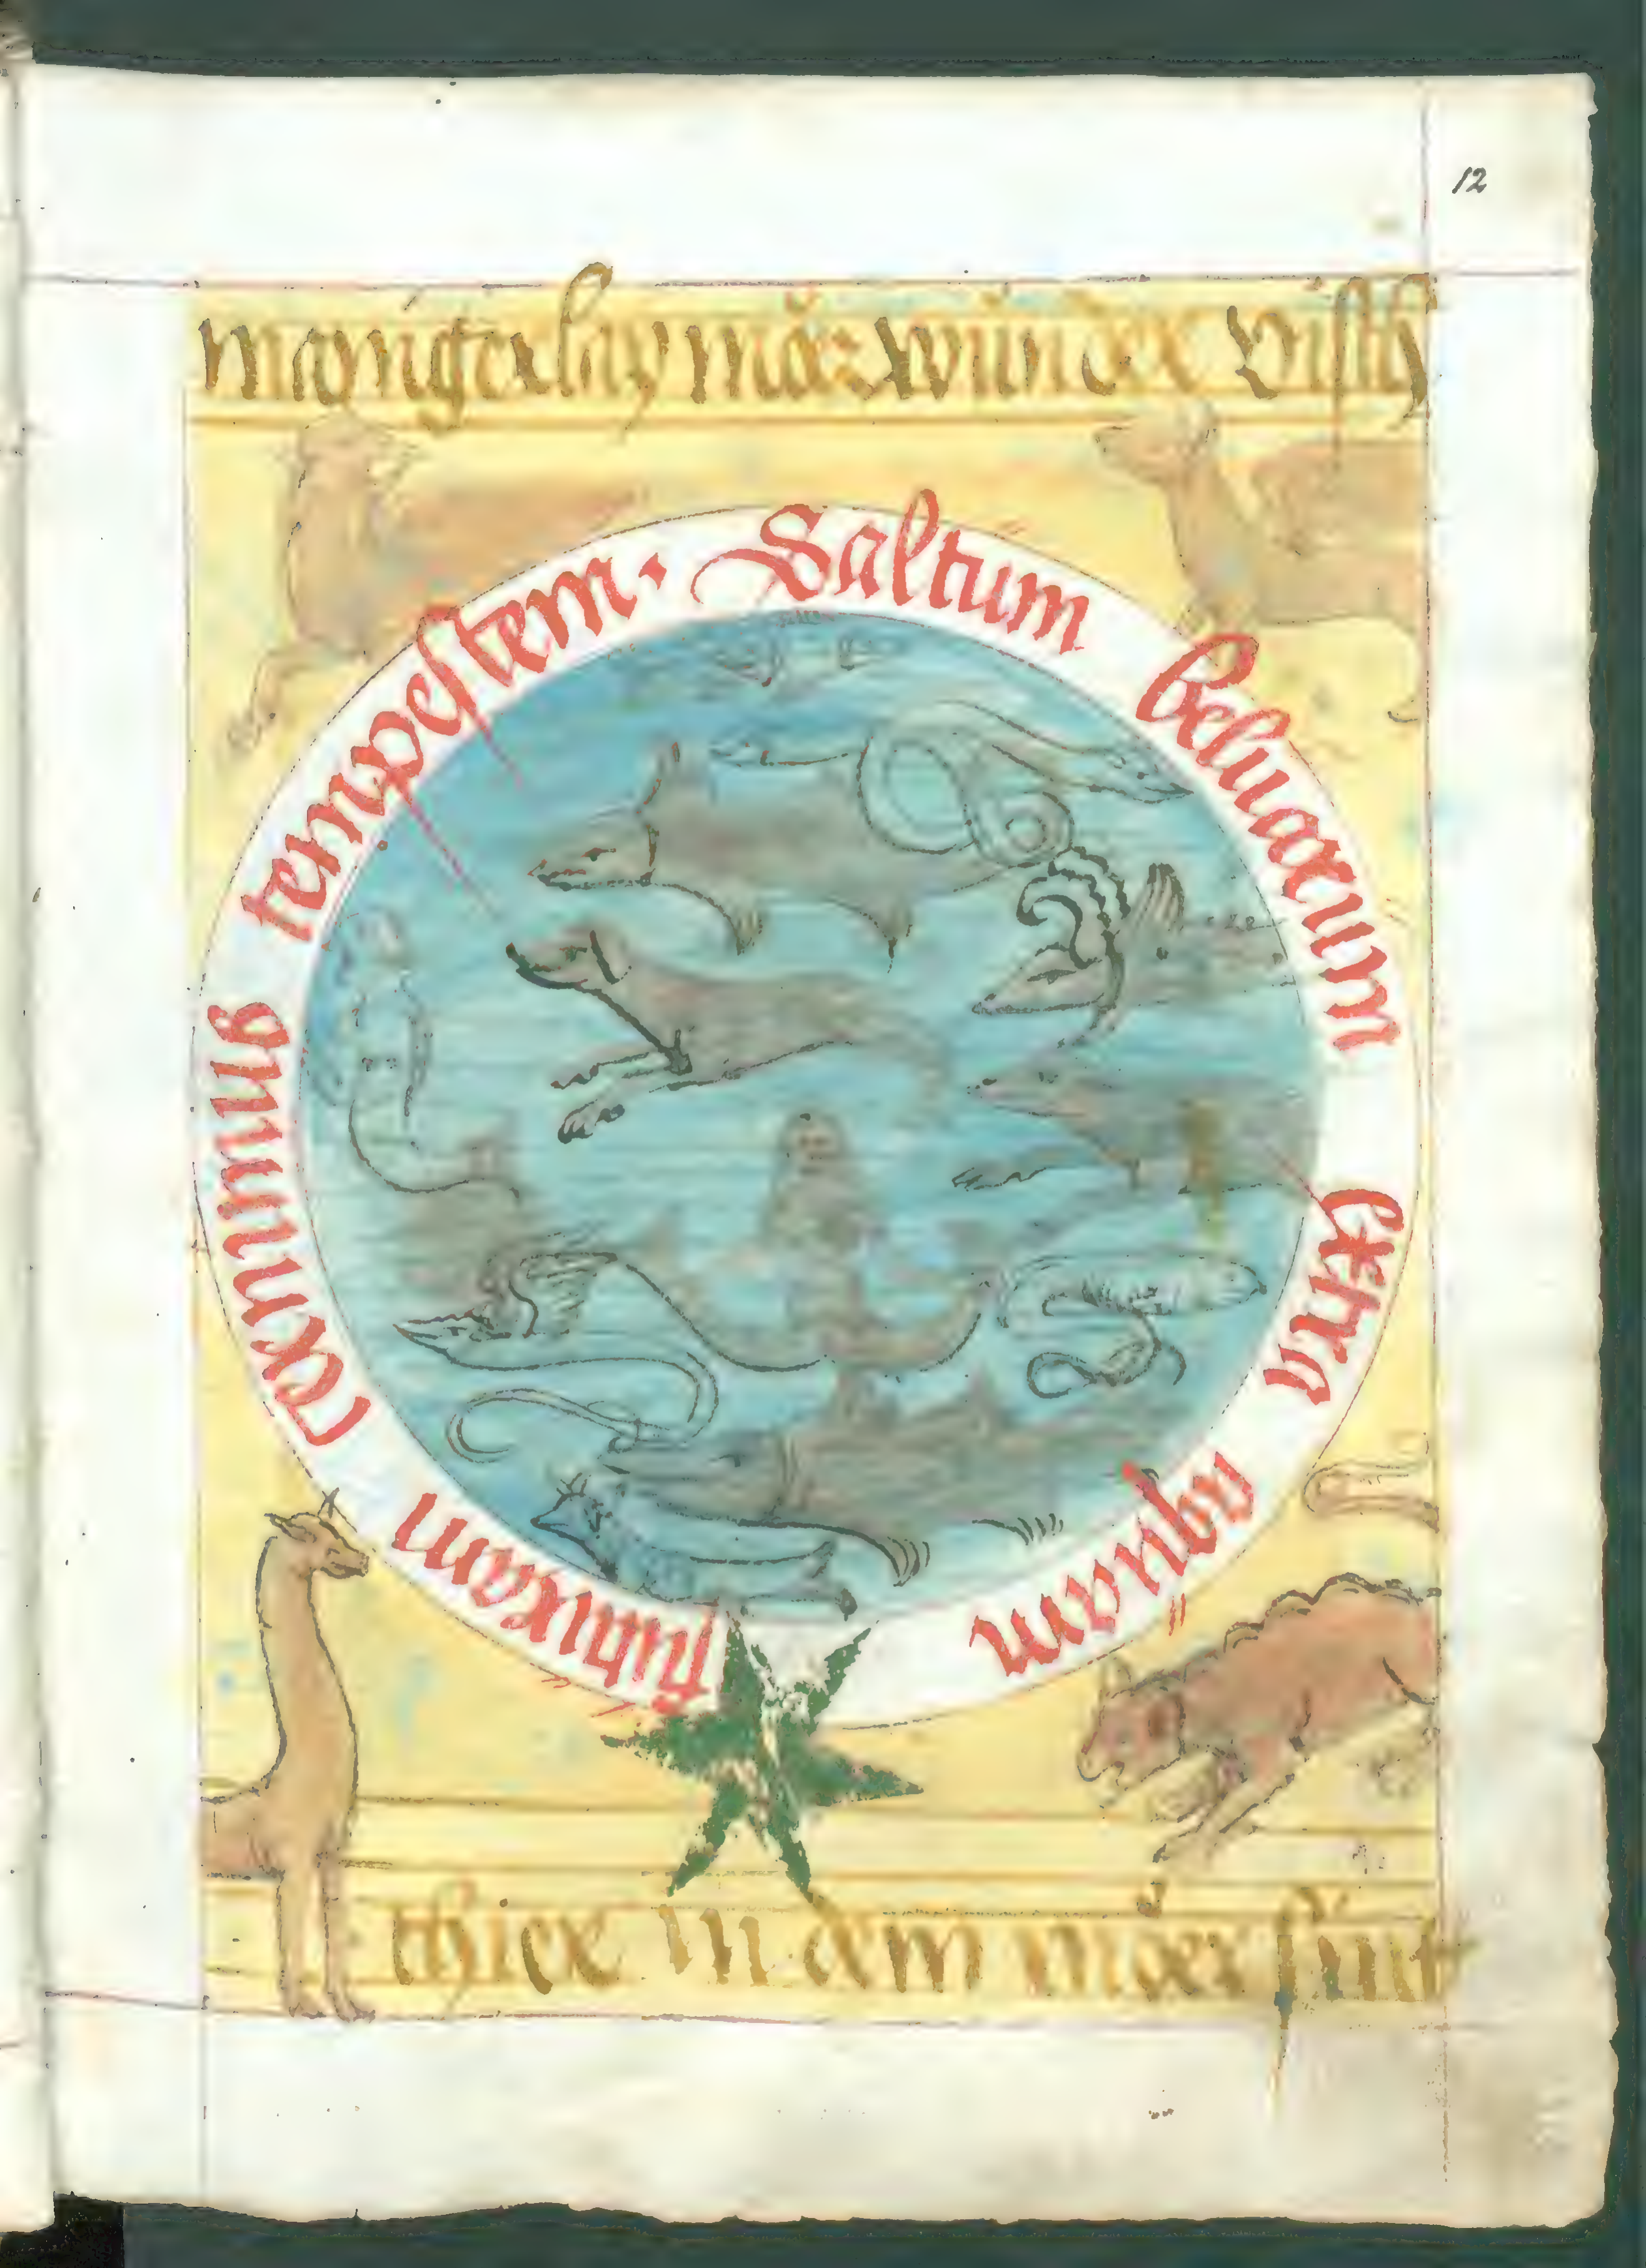 12
mangerlay mör wunder visch
Saltum beluarum extra aquam futuram cernimus tempestem.
thier in dem mör sint